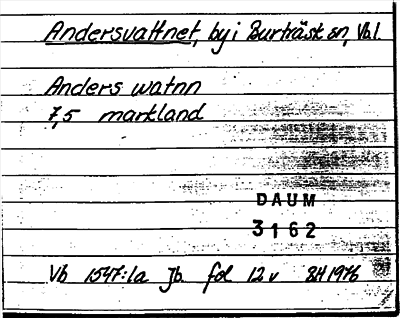 Andersvattnet, by i Burträsk sn, Vb.l.
Anders watnn
7,5 markland
DAUM
3162
Vb 1547:1a Jb. fol 12v BH 1976